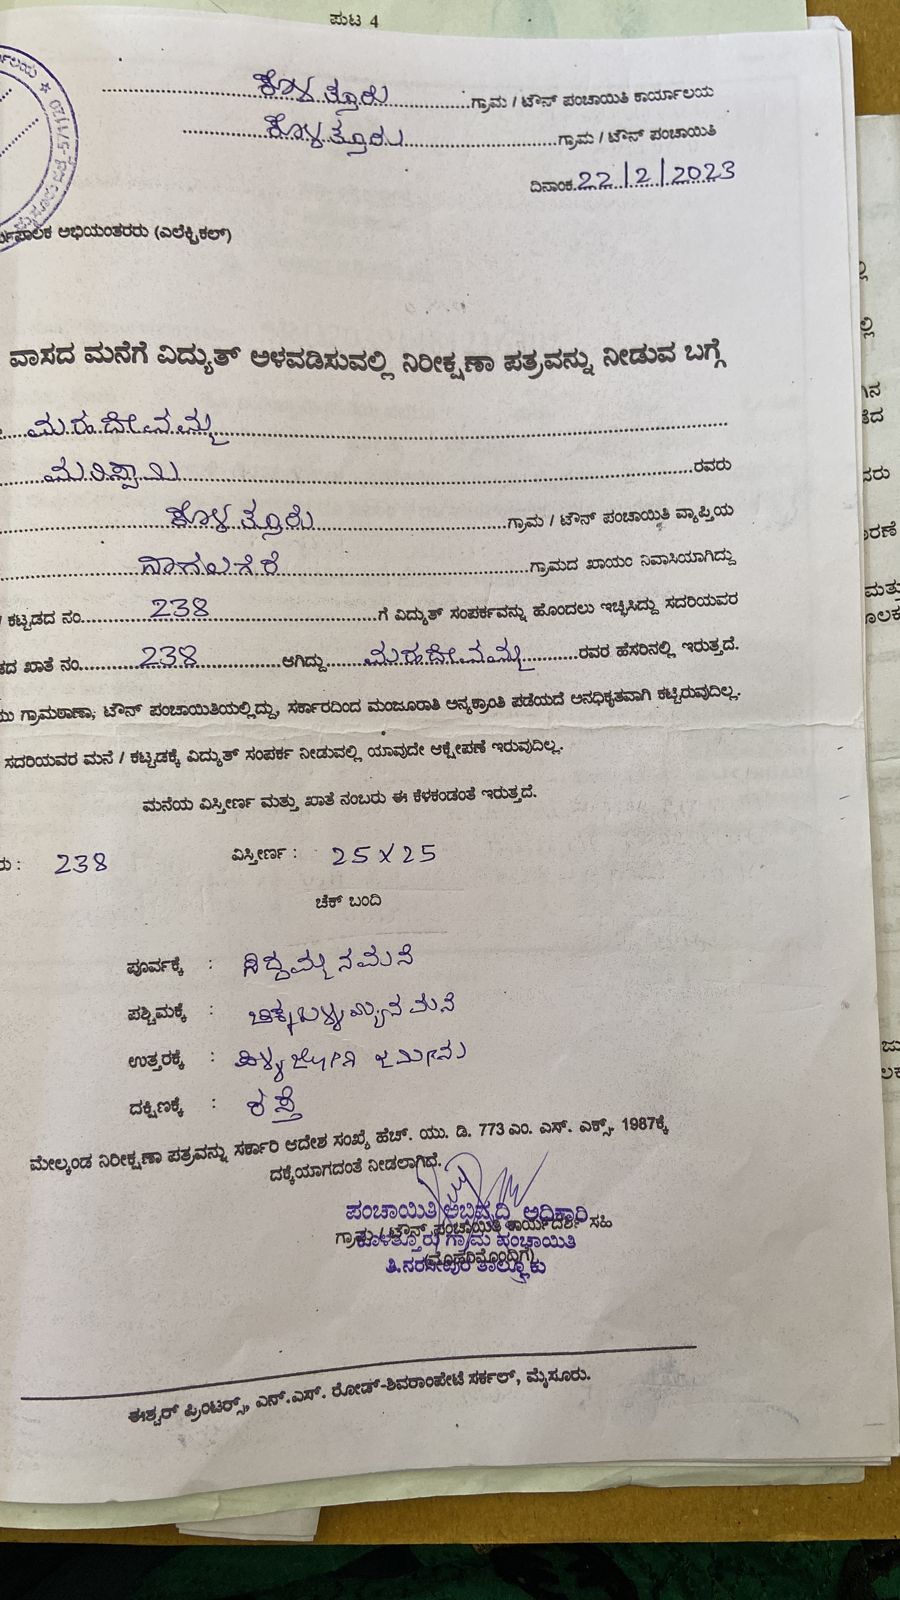 ಪುಟ 4
ಕೊಳತ್ತೂರು ಗ್ರಾಮ / ಟೌನ್ ಪಂಚಾಯಿತಿ ಕಾರ್ಯಾಲಯ
ಕೊಳತ್ತೂರು ಗ್ರಾಮ / ಟೌನ್ ಪಂಚಾಯಿತಿ
ದಿನಾಂಕ 22/2/2023
ಅಭಿಯಂತರರು (ಎಲೆಕ್ಟ್ರಿಕಲ್)
ವಾಸದ ಮನೆಗೆ ವಿದ್ಯುತ್ ಅಳವಡಿಸುವಲ್ಲಿ ನಿರೀಕ್ಷಣಾ ಪತ್ರವನ್ನು ನೀಡುವ ಬಗ್ಗೆ
ಮಹದೇವಮ್ಮ
ಮರಿಸ್ವಾಮಿ ರವರು
ಕೊಳತ್ತೂರು ಗ್ರಾಮ / ಟೌನ್ ಪಂಚಾಯಿತಿ ವ್ಯಾಪ್ತಿಯ
ನಾಗಲಗೆರೆ ಗ್ರಾಮದ ಖಾಯಂ ನಿವಾಸಿಯಾಗಿದ್ದು
/ ಕಟ್ಟಡದ ನಂ. 238 ಗೆ ವಿದ್ಯುತ್ ಸಂಪರ್ಕವನ್ನು ಹೊಂದಲು ಇಚ್ಛಿಸಿದ್ದು ಸದರಿಯವರ
ಖಾತೆ ನಂ. 238 ಆಗಿದ್ದು ಮಹದೇವಮ್ಮ ರವರ ಹೆಸರಿನಲ್ಲಿ ಇರುತ್ತದೆ.
ಗ್ರಾಮಠಾಣಾ, ಟೌನ್ ಪಂಚಾಯಿತಿಯಲ್ಲಿದ್ದು, ಸರ್ಕಾರದಿಂದ ಮಂಜೂರಾತಿ ಅನ್ಯಕ್ರಾಂತಿ ಪಡೆಯದೆ ಅನಧಿಕೃತವಾಗಿ ಕಟ್ಟಿರುವುದಿಲ್ಲ.
ಸದರಿಯವರ ಮನೆ / ಕಟ್ಟಡಕ್ಕೆ ವಿದ್ಯುತ್ ಸಂಪರ್ಕ ನೀಡುವಲ್ಲಿ ಯಾವುದೇ ಆಕ್ಷೇಪಣೆ ಇರುವುದಿಲ್ಲ.
ಮನೆಯ ವಿಸ್ತೀರ್ಣ ಮತ್ತು ಖಾತೆ ನಂಬರು ಈ ಕೆಳಕಂಡಂತೆ ಇರುತ್ತದೆ.
238 ವಿಸ್ತೀರ್ಣ : 25 X 25
ಚೆಕ್ ಬಂದಿ
ಪೂರ್ವಕ್ಕೆ : ಸಿದ್ದಮ್ಮನ ಮನೆ
ಪಶ್ಚಿಮಕ್ಕೆ : ಚಿಕ್ಕಬಳ್ಳಯ್ಯನ ಮನೆ
ಉತ್ತರಕ್ಕೆ : ಜಮೀನು
ದಕ್ಷಿಣಕ್ಕೆ : ರಸ್ತೆ
ಮೇಲ್ಕಂಡ ನಿರೀಕ್ಷಣಾ ಪತ್ರವನ್ನು ಸರ್ಕಾರಿ ಆದೇಶ ಸಂಖ್ಯೆ ಹೆಚ್. ಯು. ಡಿ. 773 ಎಂ. ಎಸ್. ಎಕ್ಸ್. 1987ಕ್ಕೆ
ದಕ್ಕೆಯಾಗದಂತೆ ನೀಡಲಾಗಿದೆ.
ಪಂಚಾಯಿತಿ ಅಭಿವೃದ್ಧಿ ಅಧಿಕಾರಿ
ಗ್ರಾಮ / ಟೌನ್ ಪಂಚಾಯಿತಿ ಕಾರ್ಯದರ್ಶಿ ಸಹಿ
ಕೊಳತ್ತೂರು ಗ್ರಾಮ ಪಂಚಾಯಿತಿ
(ಮೊಹರಿನೊಂದಿಗೆ)
ತಿ.ನರಸೀಪುರ ತಾಲ್ಲೂಕು
ಈಶ್ವರ್ ಪ್ರಿಂಟರ್ಸ್, ಎನ್.ಎಸ್. ರೋಡ್-ಶಿವರಾಂಪೇಟೆ ಸರ್ಕಲ್, ಮೈಸೂರು.